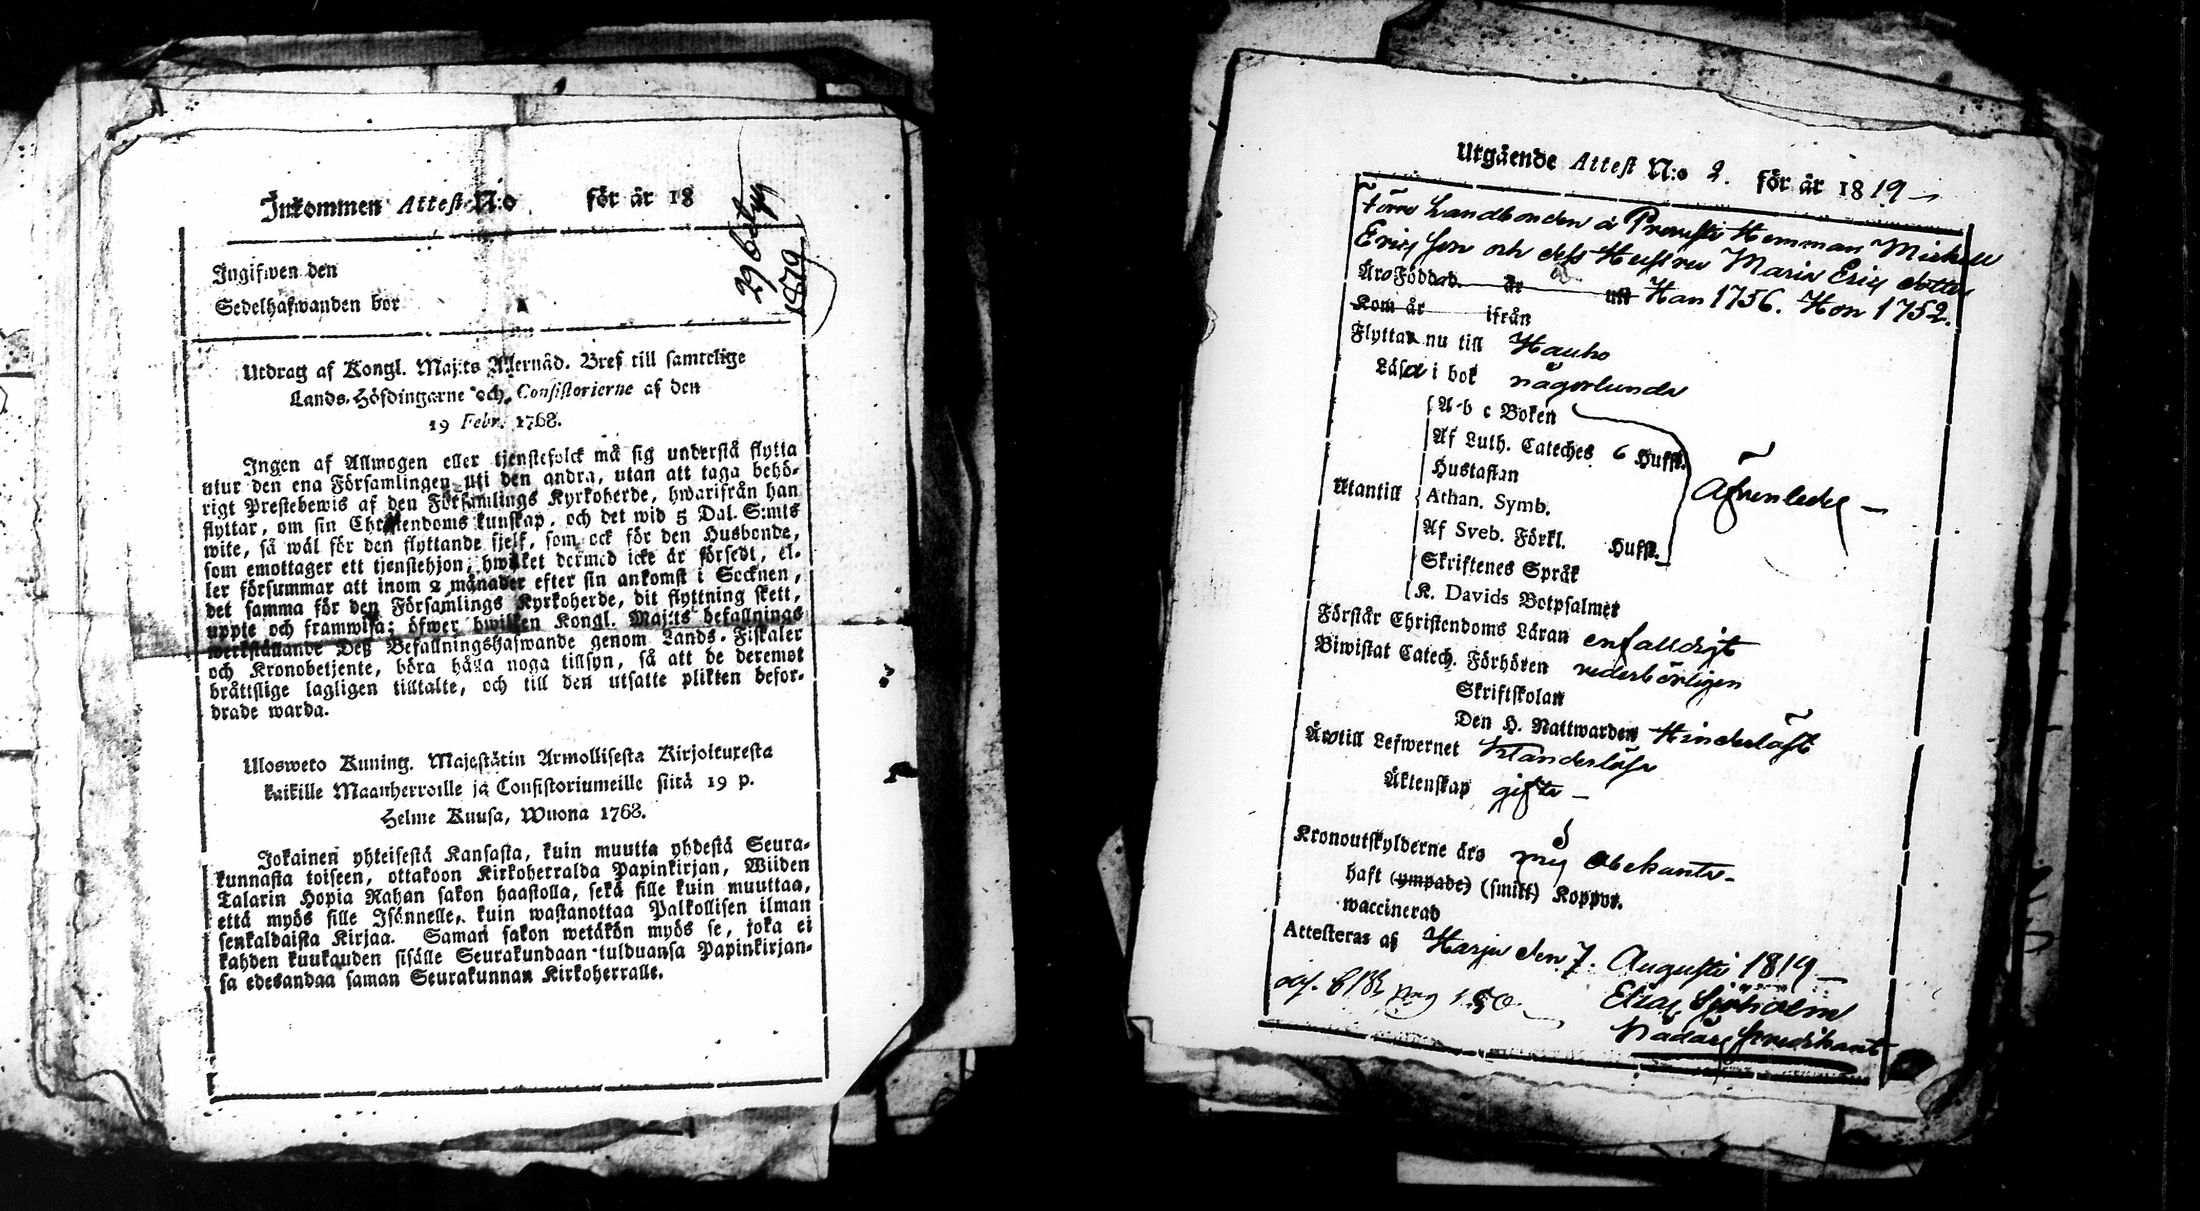 Inkommen Attest N:o för år 18
29 betyg
1819
Ingifwen den
Sedelhafwanden bor
Utdrag af Kongl. Maj:ts Allernåd. Bref till samtelige
Lands-Höfdingarne och Consistorierne af den
19 Febr. 1768.
Ingen af Allmogen eller tjenstefolck må sig understå flytta
utur den ena Församlingen uti den andra, utan att taga behö-
rigt Prestebewis af den Församlings Kyrkoherde, hwarifrån han
flyttar, om sin Christendoms kunskap, och det wid 5 Dal. S:mts
wite, så wäl för den flyttande sjelf, som ock för den Husbonde,
som emottager ett tjenstehjon, hwilket dermed icke är försedt, el-
ler försummar att inom 2 månader efter sin ankomst i Socknen,
det samma för den Församlings Kyrkoherde, dit flyttning skett,
uppte och framwisa; öfwer hwilken Kongl. Maj:ts befallnings
werkställande Deß Befallningshafwande genom Lands-Fiskaler
och Kronobetjente, böra hålla noga tillsyn, så att de deremot
bråttslige lagligen tilltalte, och till den utsatte plikten befor-
drade warda.
Ulosweto Kuning. Majestätin Armollisesta Kirjoituxesta
kaikille Maanherroille ja Consistoriumeille siitä 19 p.
Helme Kuusa, Wuona 1768.
Jokainen yhteisestä Kansasta, kuin muutta yhdestä Seura-
kunnasta toiseen, ottakoon Kirkoherralda Papinkirjan, Wiiden
Talarin Hopia Rahan sakon haastolla, sekä sille kuin muuttaa,
että myös sille Isännelle, kuin wastanottaa Palkollisen ilman
senkaldaista Kirjaa. Saman sakon wetäkön myös se, joka ei
kahden kuukauden sisälle Seurakundaan tulduansa Papinkirjan-
sa edesandaa saman Seurakunnan Kirkoherralle.
Utgående Attest N:o 2. för år 1819
Förre Landbonden å Prousti Hemman Mickell
Ericsson och dess Hustru Maria Ericsdotter
Äro Född Han 1756. Hon 1752.
Kom år ifrån
Flytta nu till Hauho
Läsa i bok någorlunda
A-b c Boken
Af Luth. Cateches 6 Hufst.
Hustaflan
Utantill Athan. Symb.
Af Sveb. Förkl. Hufst.
Skriftenes Språk
K. Davids Botpsalmer
Äfvenledes
Förstår Christendoms Läran enfalldigt
Biwistat Catech. Förhören vederbörligen
Skriftskolan
Den H. Nattwarden Hinderlöst
Äro till Lefwernet Klanderlöse
Äktenskap gifte
Kronoutskylderne äro mig obekante
haft (ympade) (smitt) Koppor.
waccinerad
Attesteras af Harju den 7. Augusti 1819
Elias Sjöholm
Nådårs predikant